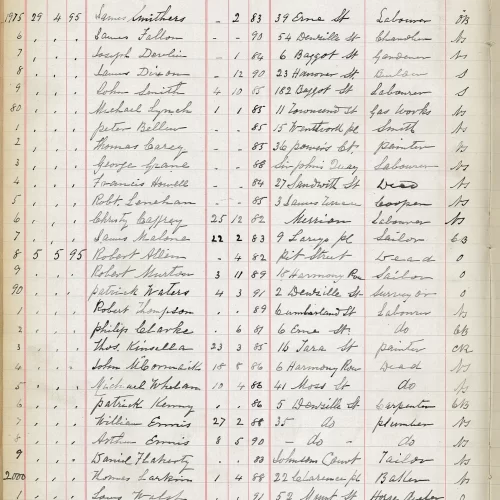 1975 29 4 95 James Smithers - 2 83 39 Erne St Labourer
6 , , , James Fallon - - 90 54 Denzille St Chandler Ns
7 , , , Joseph Devlin - 1 84 6 Baggot St Gardener Ns
8 , , , James Dixon - 12 90 23 Hanover St S
9 , , , John Smith 4 10 85 182 Baggot St Labourer S
80 , , , Michael Lynch 1 1 85 11 Townsend St Gas Works Ns
1 , , , Peter Bellew - - 85 15 Wentworth pl Smith Ns
2 , , , Thomas Carey - - 85 36 powers Ct painter Ns
3 , , , George - - 88 Sir Johns Quay Labourer Ns
4 , , , Francis Howell - - 84 27 Sandwith St Dead Ns
5 , , , Robt. Lenehan - - 85 3 James Cooper Ns
6 , , , Christy Caffrey 25 12 82 Merrion Labourer Ns
7 , , , James Malone 22 2 83 9 pl Sailor
8 5 5 95 Robert Allen - 4 82 Pitt Street Dead 0
9 , , , Robert 3 11 89 15 Harmony Row Sailor 0
90 , , , patrick Waters 4 3 91 2 Denzille St Surveyor 0
1 , , , Robert Thompson , 89 Cumberland St Labourer Ns
2 , , , philip Clarke , 6 81 6 Erne St do
3 , , , Thos. Kinsella 23 3 85 16 Tara St painter
4 , , , John McCormack 18 8 86 6 Harmony Row Dead Ns
5 , , , Michael Whelan 10 4 86 41 Moss St do Ns
6 , , , patrick Kenny , , 86 5 Denzille St Carpenter
7 , , , William Ennis 27 2 88 35 - do plumber Ns
8 , , , Arthur Ennis 8 5 90 - do - do Ns
9 , , , Daniel Flaherty , 83 Johnsons Court Tailor Ns
2000 , , , Thomas Larkin 1 4 88 22 Clarence pl Ns
1 , , , James Walsh 91 52 St